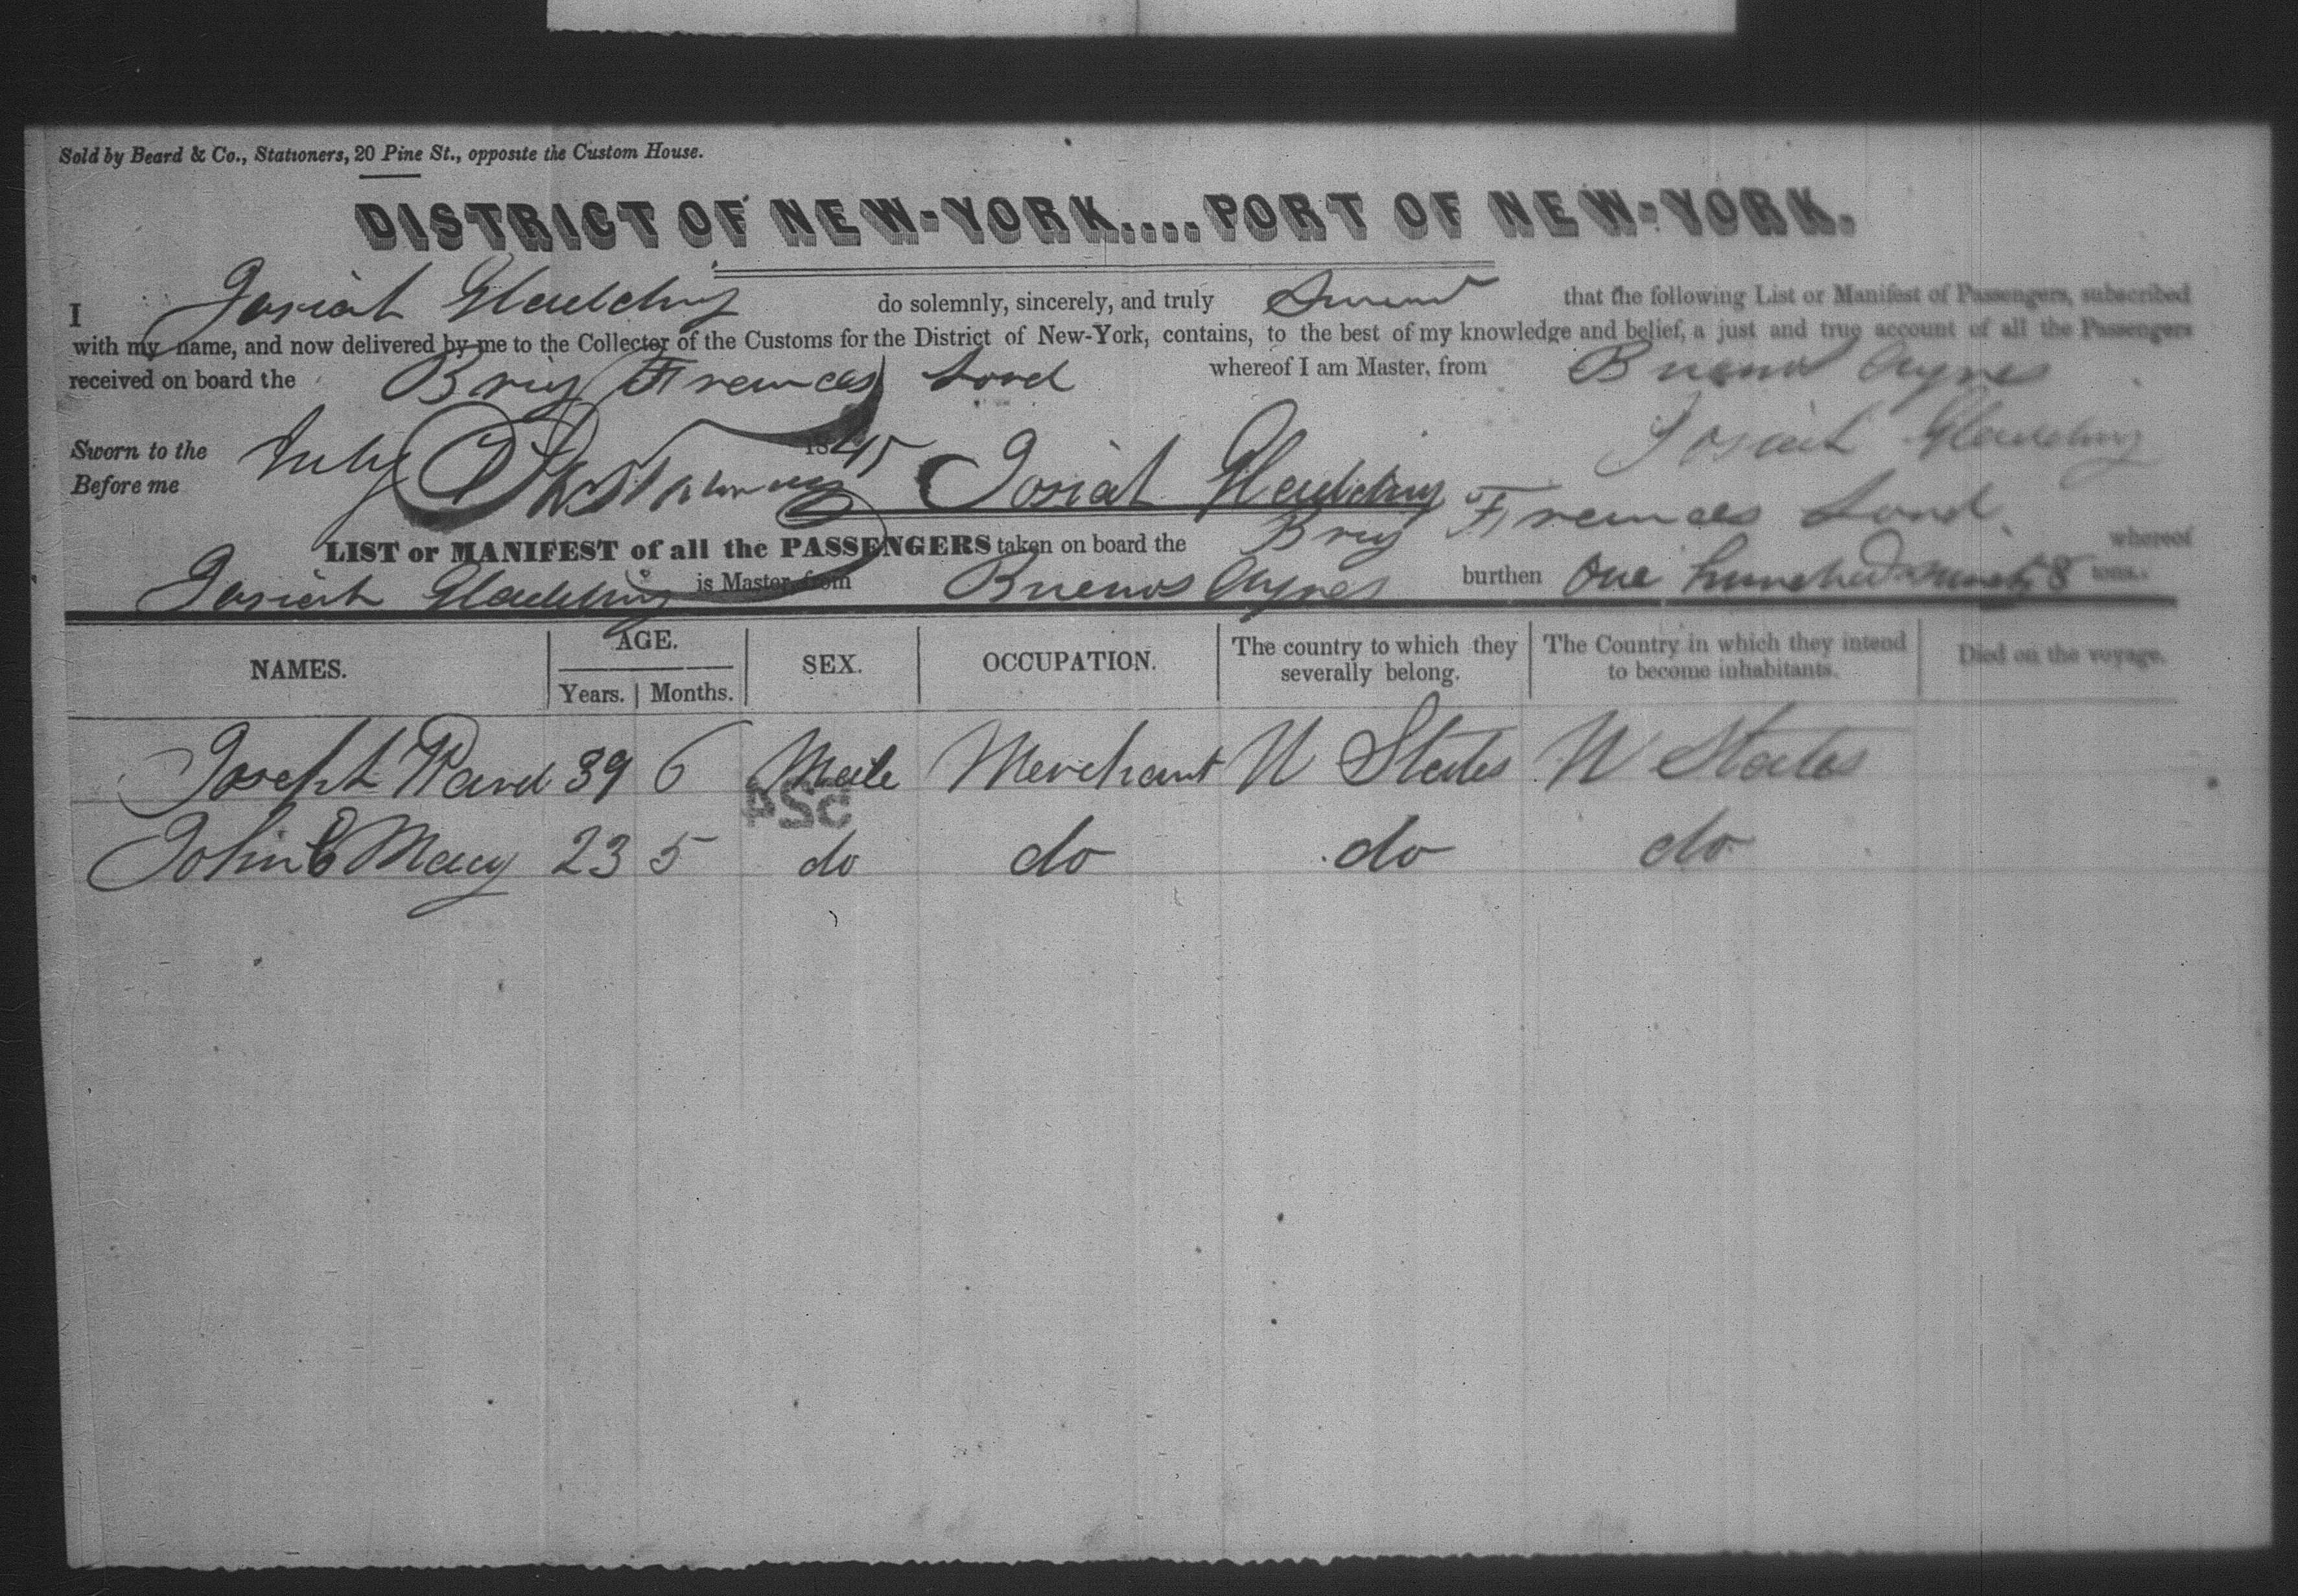 Sold by Beard & Co., Stationers, 20 Pine St., opposite the Custom House.
DISTRICT OF NEW-YORK....PORT OF NEW-YORK.
I Josiah Gladding do solemnly, sincerely, and truly Swear that the following List or Manifest of Passengers, subscribed
with my name, and now delivered by me to the Collector of the Customs for the District of New-York, contains, to the best of my knowledge and belief, a just and true account of all the Passengers
received on board the Brig Frances Lord whereof I am Master, from Buenos Ayres
Josiah Gladding
Sworn to the July 1845 Josiah Gladding
Before me
LIST or MANIFEST of all the PASSENGERS taken on board the Brig Frances Lord whereof
Josiah Gladding is Master, from Buenos Ayres burthen One hundred ninety 8 tons.
NAMES. AGE. SEX. OCCUPATION. The country to which they severally belong. The Country in which they intend to become inhabitants. Died on the voyage.
Years. Months.
Joseph Ward 39 6 Male Merchant U States U States
PSC
John C Macy 23 5 do do do do